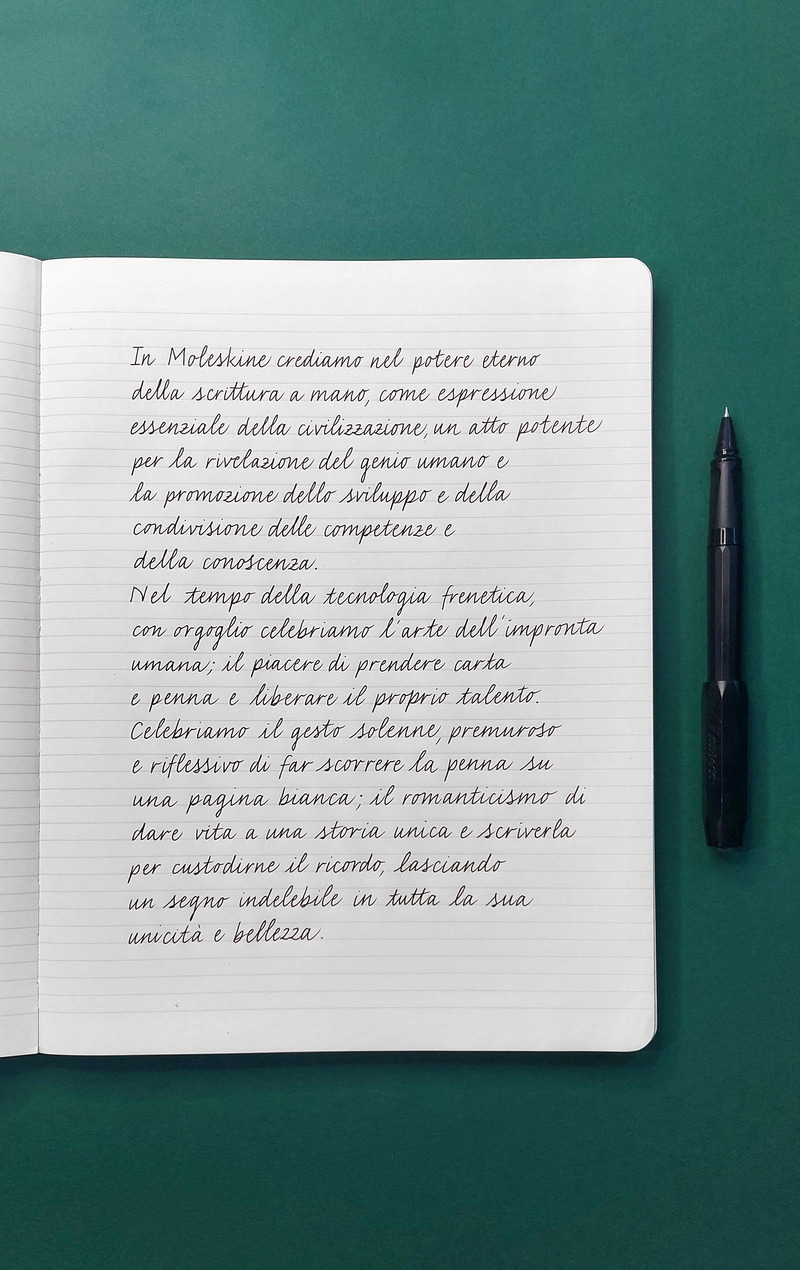 In Moleskine crediamo nel potere eterno
della scrittura a mano, come espressione
essenziale della civilizzazione, un atto potente
per la rivelazione del genio umano e
la promozione dello sviluppo e della
condivisione delle competenze e
della conoscenza.
Nel tempo della tecnologia frenetica,
con orgoglio celebriamo l'arte dell'impronta
umana; il piacere di prendere carta
e penna e liberare il proprio talento.
Celebriamo il gesto solenne, premuroso
e riflessivo di far scorrere la penna su
una pagina bianca; il romanticismo di
dare vita a una storia unica e scriverla
per custodirne il ricordo, lasciando
un segno indelebile in tutta la sua
unicità e bellezza.